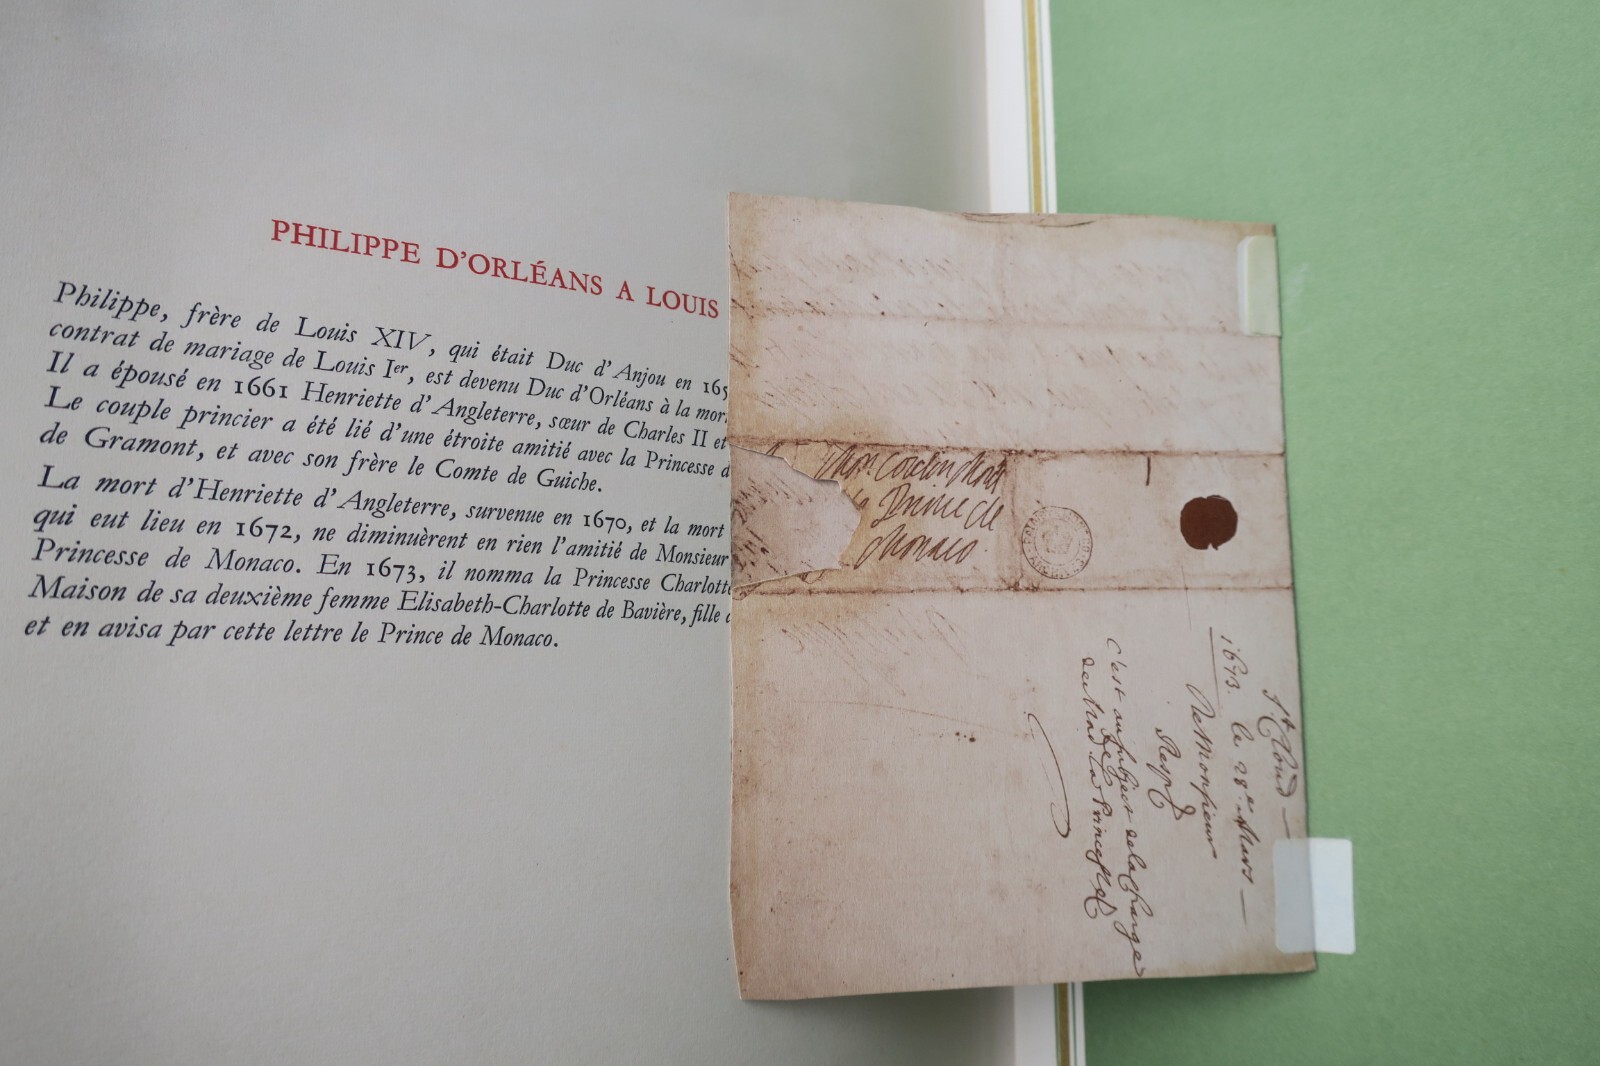 PHILIPPE D'ORLÉANS A LOUIS
Philippe, frère de Louis XIV, qui était Duc d'Anjou en 165
contrat de mariage de Louis Ier, est devenu Duc d'Orléans à la mor
Il a épousé en 1661 Henriette d'Angleterre, sœur de Charles II et
Le couple princier a été lié d'une étroite amitié avec la Princesse d
de Gramont, et avec son frère le Comte de Guiche.
La mort d'Henriette d'Angleterre, survenue en 1670, et la mort
qui eut lieu en 1672, ne diminuèrent en rien l'amitié de Monsieur
Princesse de Monaco. En 1673, il nomma la Princesse Charlotte
Maison de sa deuxième femme Elisabeth-Charlotte de Bavière, fille d
et en avisa par cette lettre le Prince de Monaco.
Mon Cousin Mons
le Prince de
Monaco
St Cloud
1673. le 28e Mars
De Monsieur
Resp
c'est au subject de la charge
de Mad. la Princesse